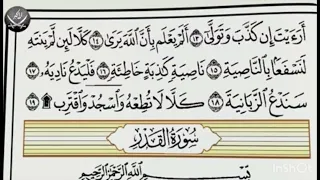 أَرَءَيْتَ إِن كَذَّبَ وَتَوَلَّىٰٓ ١٣ أَلَمْ يَعْلَم بِأَنَّ ٱللَّهَ يَرَىٰ ١٤ كَلَّا لَئِن لَّمْ يَنتَهِ
لَنَسْفَعًۢا بِٱلنَّاصِيَةِ ١٥ نَاصِيَةٍ كَٰذِبَةٍ خَاطِئَةٍ ١٦ فَلْيَدْعُ نَادِيَهُۥ ١٧
سَنَدْعُ ٱلزَّبَانِيَةَ ١٨ كَلَّا لَا تُطِعْهُ وَٱسْجُدْ وَٱقْتَرِب ۩ ١٩
سُورَةُ الْقَدْرِ
بِسْمِ ٱللَّهِ ٱلرَّحْمَٰنِ ٱلرَّحِيمِ
InShot